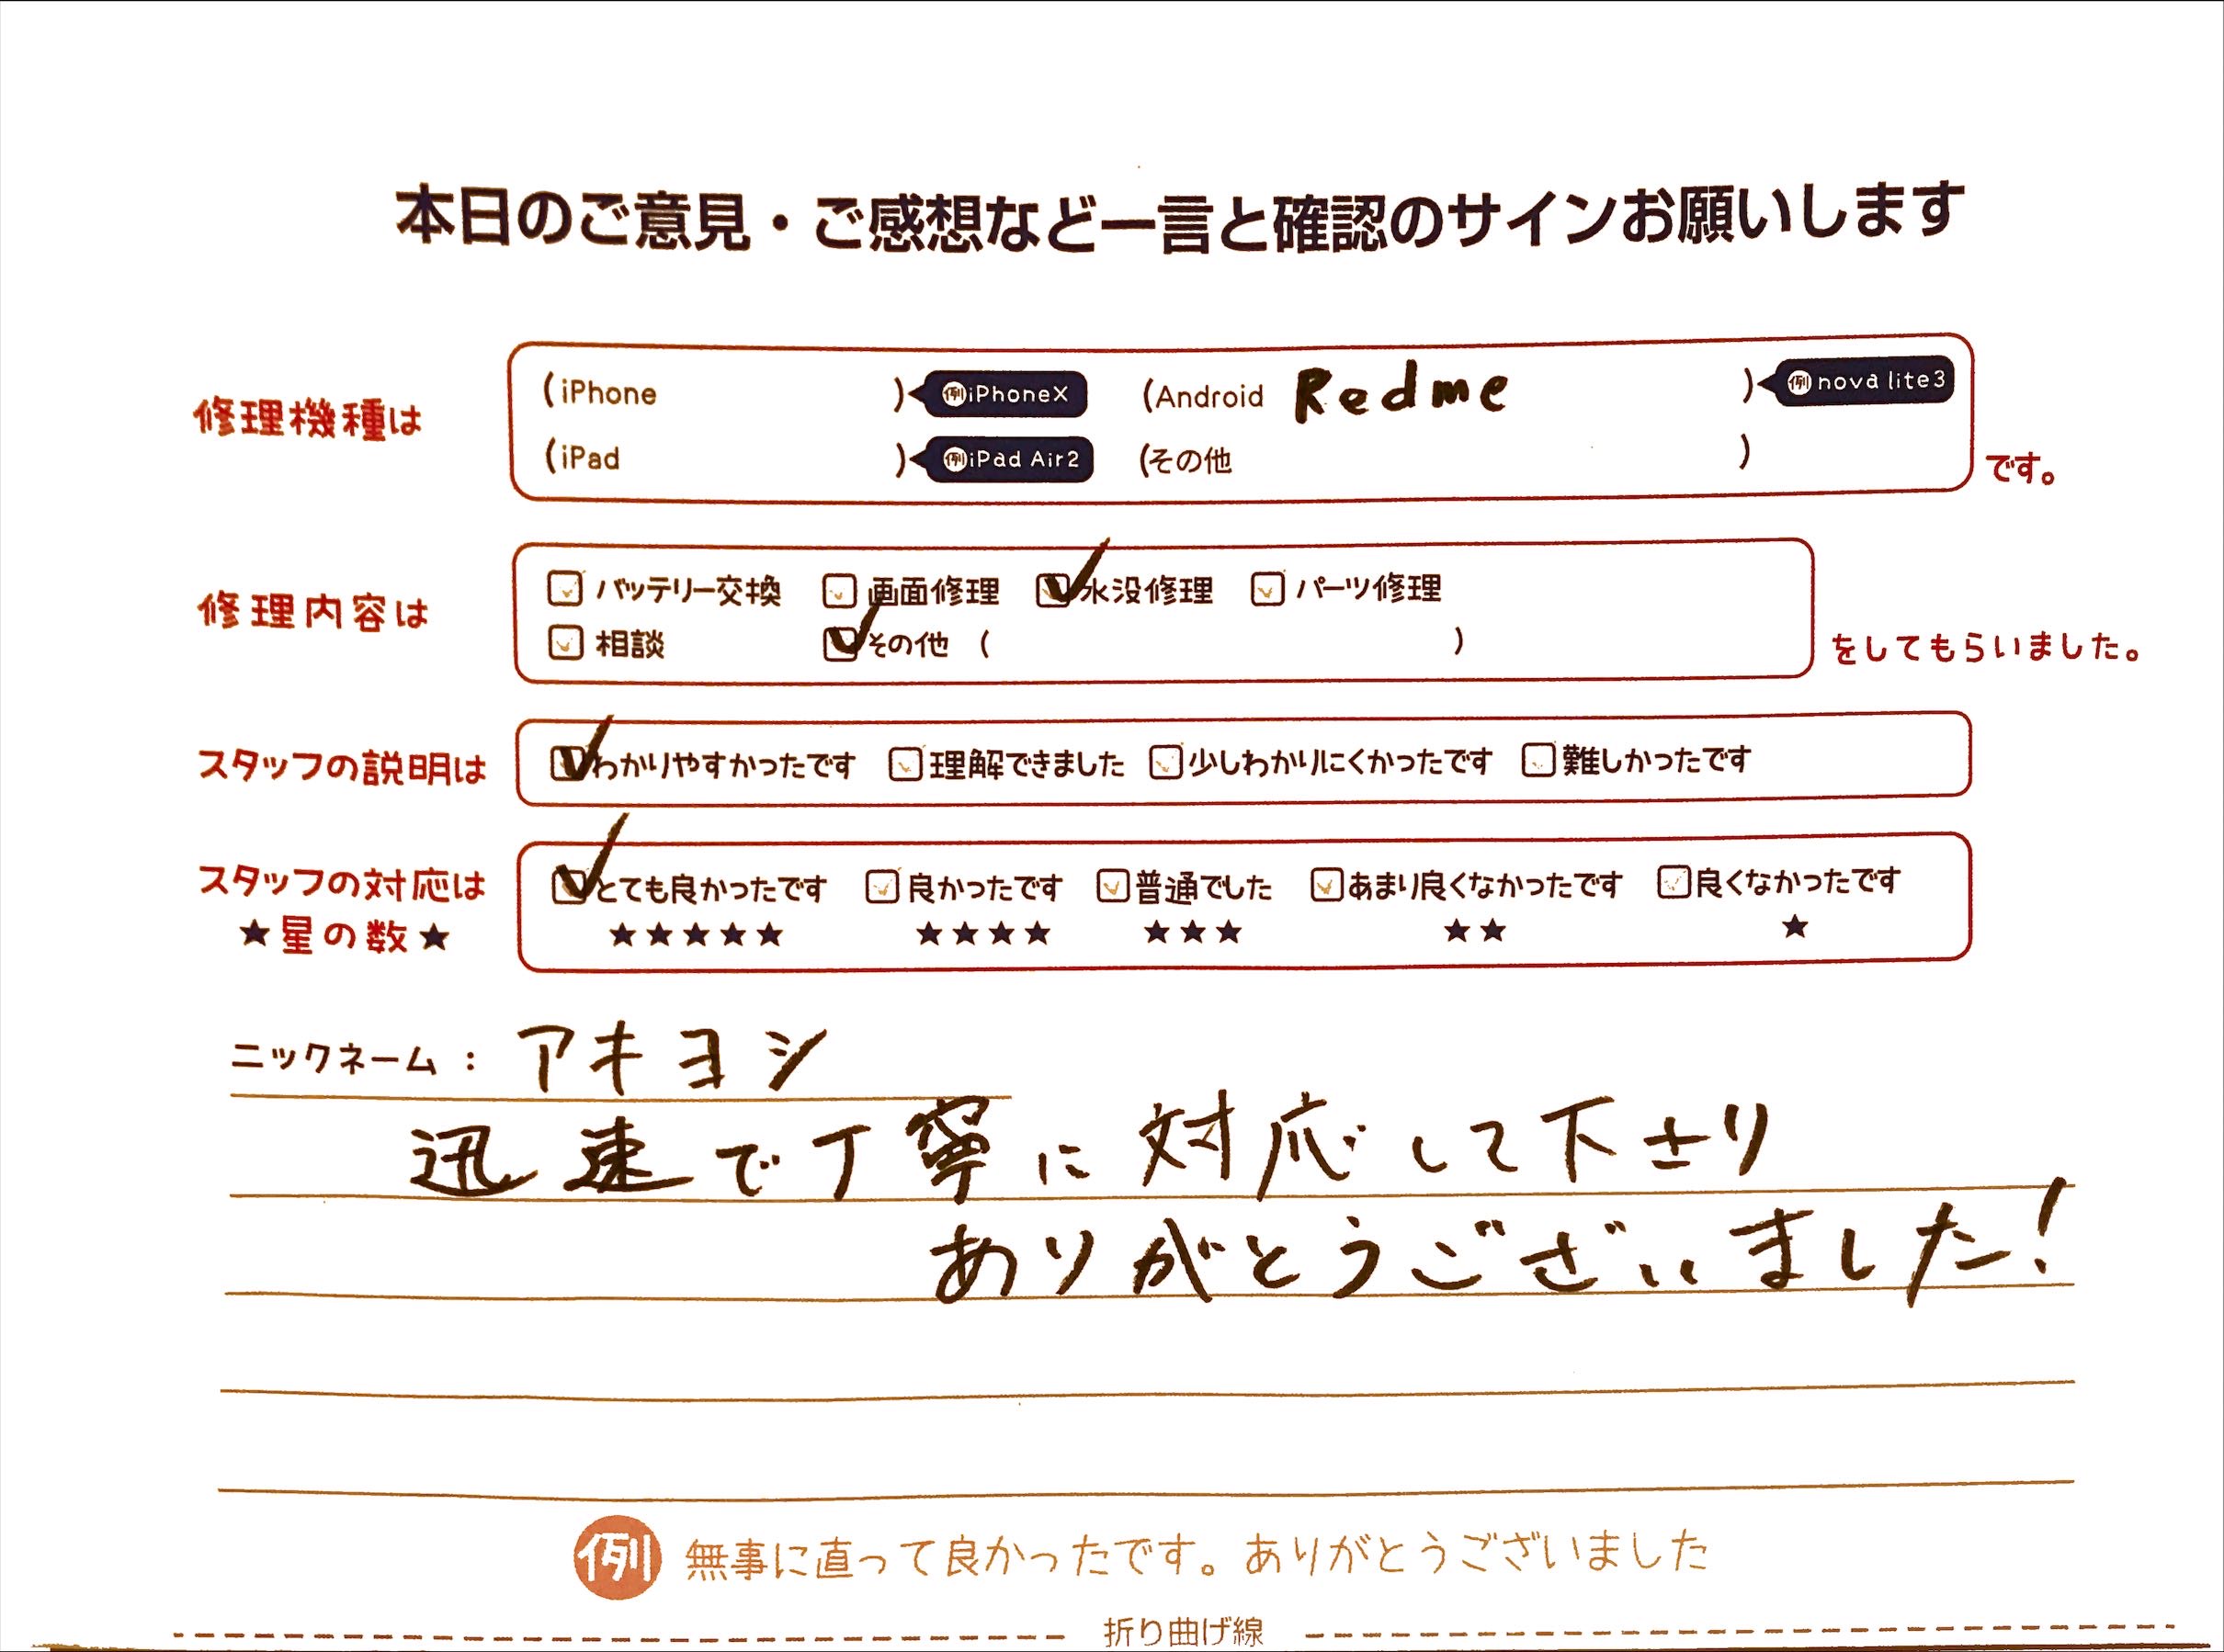 本日のご意見・ご感想など一言と確認のサインお願いします
修理機種は
(iPhone ) 例iPhoneX (Android Redme ) 例nova lite3
(iPad ) 例iPad Air2 (その他 ) です。
修理内容は
バッテリー交換 画面修理 水没修理 パーツ修理
相談 その他 ( ) をしてもらいました。
スタッフの説明は わかりやすかったです 理解できました 少しわかりにくかったです 難しかったです
スタッフの対応は とても良かったです 良かったです 普通でした あまり良くなかったです 良くなかったです
★星の数★ ★★★★★ ★★★★ ★★★ ★★ ★
ニックネーム : アキヨシ
迅速で丁寧に対応して下さり
ありがとうございました!
例 無事に直って良かったです。ありがとうございました
折り曲げ線